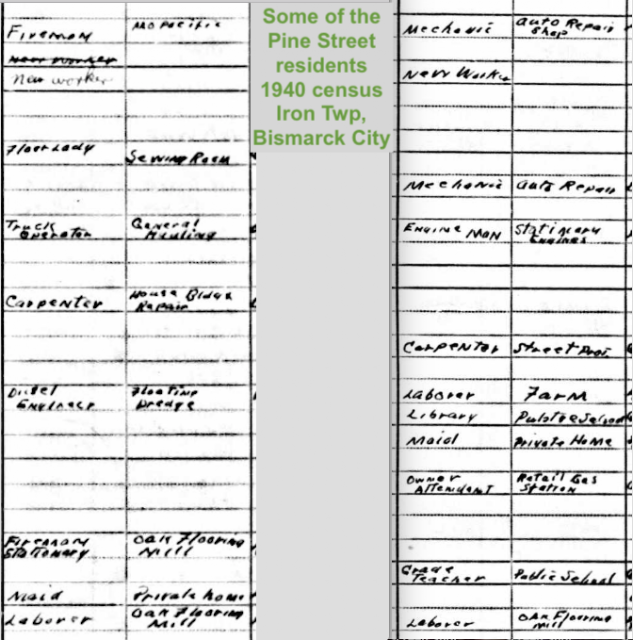 Some of the
Pine Street
residents
1940 census
Iron Twp,
Bismarck City
Fireman Mo Pacific
New Worker
New worker
Floor Lady Sewing Room
Truck General
Operator Hauling
Carpenter House Bldgs
Repair
Diesel Floating
Engineer Dredge
Fireman Oak Flooring
Stationary Mill
Maid Private home
Laborer Oak Flooring
Mill
Mechanic Auto Repair
Shop
New Worker
Mechanic Auto Repair
Engine Man Stationary
Engines
Carpenter Street Proj.
Laborer Farm
Library Public School
Maid Private Home
Owner Retail Gas
Attendant Station
Grade
Teacher Public School
Laborer Oak Flooring
Mill